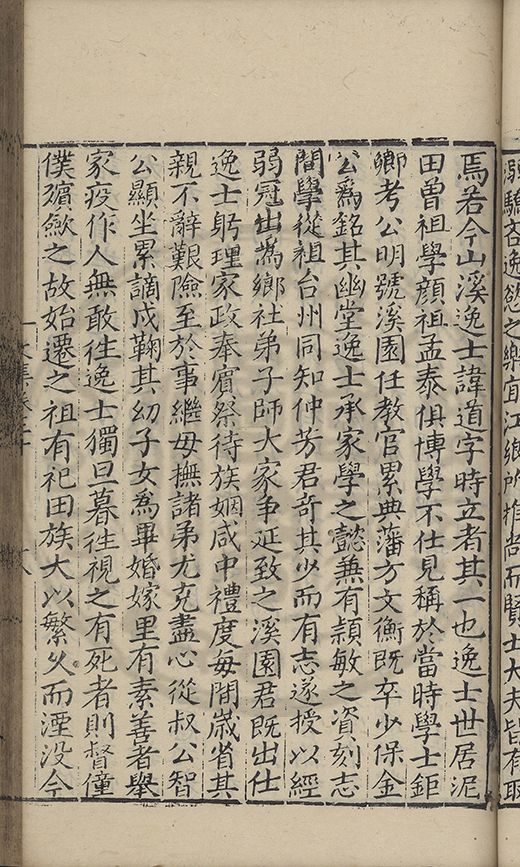 弱驕吝逸慾之樂宜江鄉所推尚而賢士大夫皆有取
焉若今山溪逸士諱道字時立者其一也逸士世居泥
田曾祖學顔祖孟泰俱博學不仕見稱於當時學士鉅
卿考公明號溪園任教官累典藩方文衡既卒少保金
公為銘其幽堂逸士承家學之懿兼有頴敏之資刻志
問學從祖台州同知仲芳君奇其少而有志遂授以經
弱冠出為鄉社弟子師大家争延致之溪園君既出仕
逸士躬理家政奉賓祭待族姻咸中禮度每間歲省其
親不辭艱險至於事繼母撫諸弟尤克盡心從叔公智
公顯坐累謫戍鞠其幼子女為畢婚嫁里有素善者舉
家疫作人無敢往逸士獨旦暮往視之有死者則督僮
僕殯歛之故始遷之祖有祀田族大以繁久而湮没今